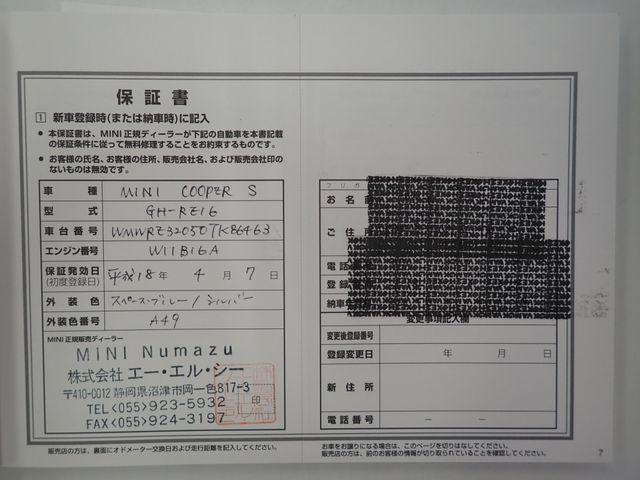 保証書
1 新車登録時(または納車時)に記入
● 本保証書は、MINI正規ディーラーが下記の自動車を本書記載
の保証条件に従って無料修理することをお約束するものです。
● お客様の氏名、お客様の住所、販売会社名、および販売会社印の
ないものは無効です。
車種 MINI COOPER S
型式 GH-RE16
車台番号 WMWRE32050TK86463
エンジン番号 W11B16A
保証発効日 平成18年 4月 7日
(初度登録日)
外装色 スペースブルー/シルバー
外装色番号 A49
MINI正規販売ディーラー
MINI Numazu
株式会社 エー・エル・シー
〒410-0012 静岡県沼津市岡一色817-3
TEL<055>923-5932
FAX<055>924-3197
印
販売店の方は、裏面にオドメーター交換日および走行距離を記入してください。
フリガ
お名
ご住
電話
登録
納車
変更事項記入欄
変更後登録番号
登録変更日 年 月 日
新住所
電話番号 － －
お車をお譲りになる場合は、このページを切りはなしてください。
販売店の方は、前のお客様の情報が切り取られていることを確認してください。
7